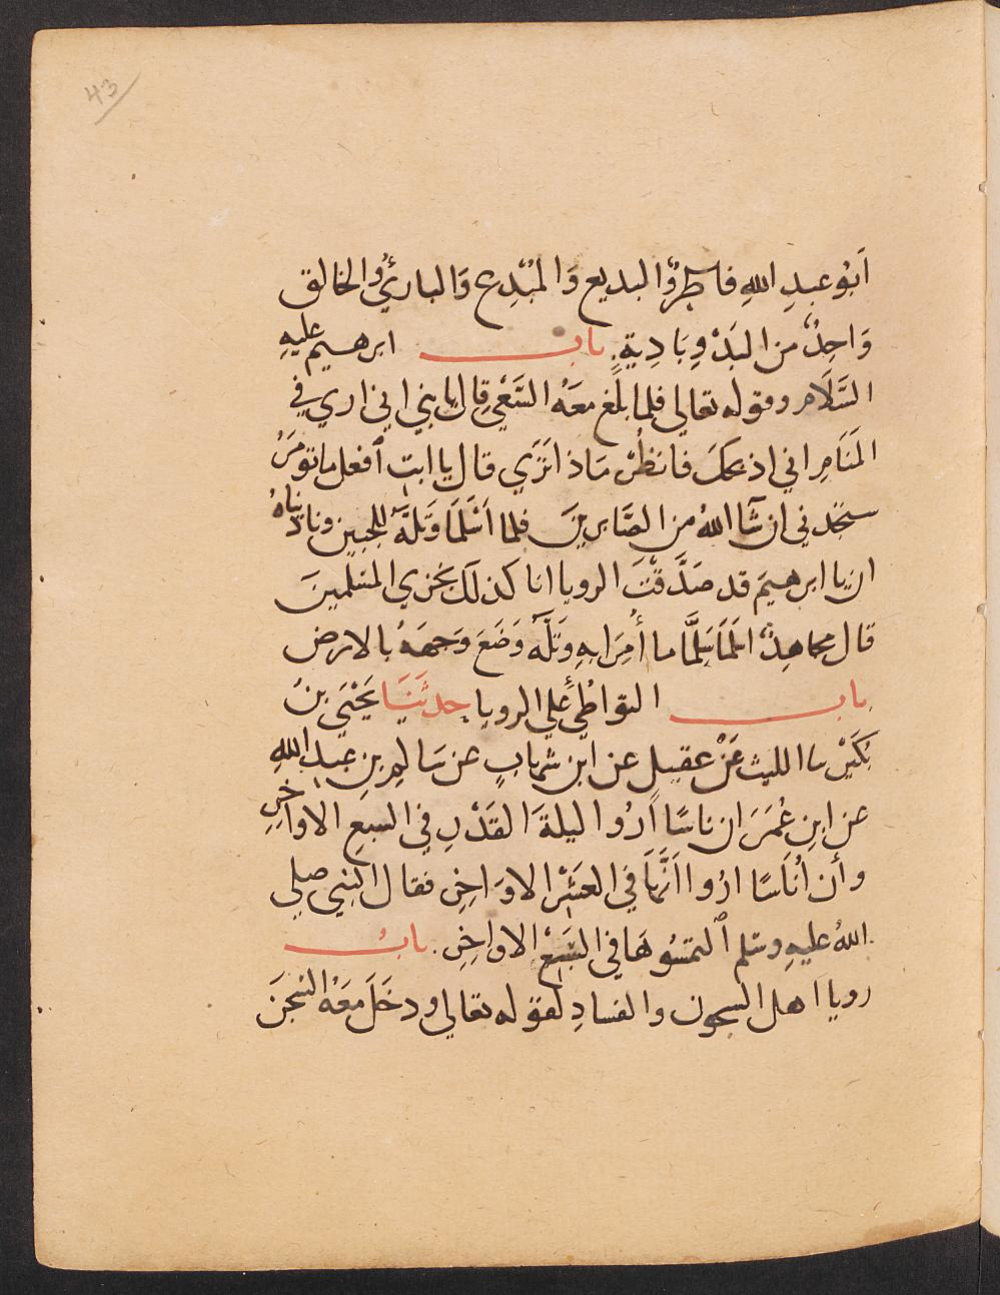 43
اَبُو عبدِ اللهِ فاطِرٌ والبديع وَالمُبْدِع وَالبارئُ والخالق
وَاحِدٌ من البَدْوِ بَادِيةٍ باب ابرهيم عليهِ
السَّلَام وقوله تعالي فلما بلَغ مَعَهُ السَّعْيَ قال يا بني اني اري في
المَنَامِ اني اذبحكَ فانظُرْ مَاذا تَرَي قال يا ابتِ ٱفعل ما تومَرُ
ستجدني ان شَآ اللهُ من الصَّابرينَ فلما اَسْلَمَا وَتلَّهُ للجبين وناديناهُ
ان يا ابرهيمَ قد صَدَّقْتَ الرويا انا كذلكَ نجزي المسلمينَ
قال مجاهِدٌ اسْلَمَا سَلَّمَا ما أُمِرَا بهِ وَتَلَّهُ وَضَعَ وَجههُ بالارض
باب التواطُئ علي الرويا حدثَنَا يَحْيَي بنُ
بُكَيْرٍ نا الليث عَنْ عقيلٍ عن ابن شهابٍ عن سَالمِ بنِ عبدِ اللهِ
عن ابنِ عُمَرَ ان ناسًا اُرُوا ليلةَ القَدْرِ في السبعِ الاواخِرِ
وأن أُنَاسًا ارُوا اَنَّهَا في العَشْرِ الاوَاخِرِ فقال النبي صلي
اللهُ عليهِ وسَلم ٱلتمسُوهَا في السَّبْعِ الاواخِرِ بابُ
رويا اهل السجون والفسادِ لقوله تعالي ودخَلَ معَهُ السجنَ